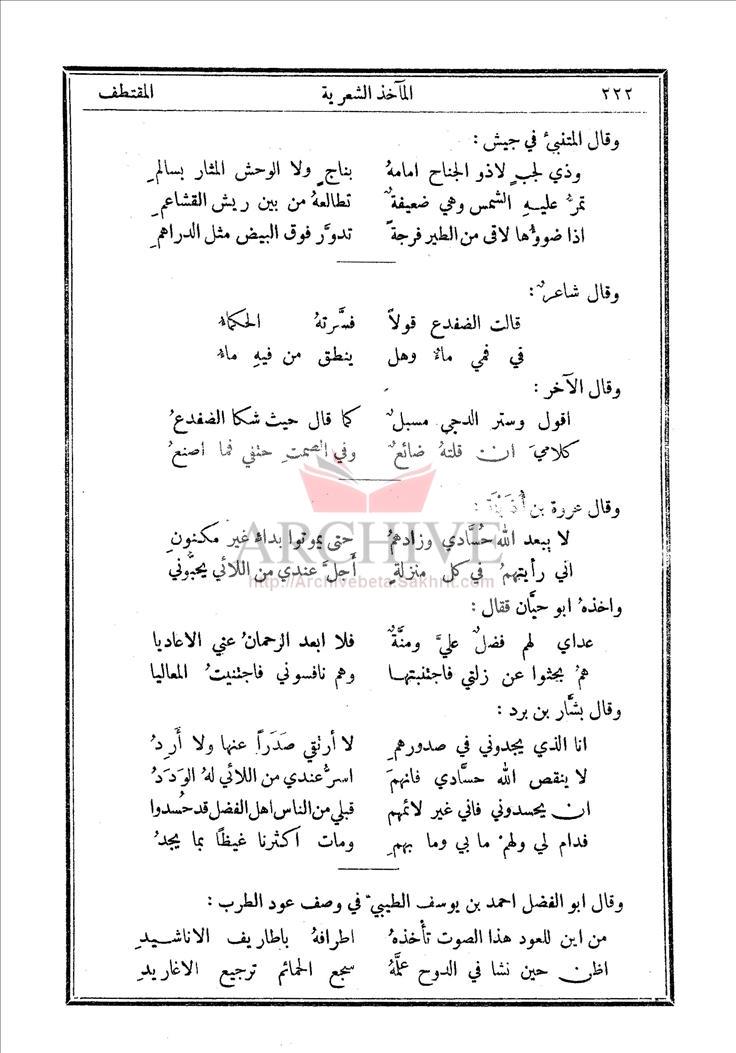 ٢٢٢ المآخذ الشعرية المقتطف
وقال المتنبئ في جيش :
وذي لجبٍ لاذو الجناح امامهُ بناجٍ ولا الوحش المثار بسالمِ
تمرُّ عليهِ الشمس وهي ضعيفةٌ تطالعهُ من بين ريش القشاعمِ
اذا ضوؤُها لاقى من الطير فرجةً تدوَّر فوق البيض مثل الدراهمِ
وقال شاعرٌ :
قالت الضفدع قولاً فسَّرتهُ الحكماءُ
في فمي ماءٌ وهل ينطق من فيهِ ماءُ
وقال الآخر :
اقول وستر الدجى مسبلٌ كما قال حيث شكا الضفدعُ
كلاميَ ان قلتهُ ضائعٌ وفي الصمتِ حتفي فما اصنعُ
وقال عروة بن أُذَيْنَة :
لا يبعد الله حُسَّادي وزادهمُ حتى يموتوا بداءٍ غير مكنونِ
اني رأيتهمُ في كل منزلةٍ أجلَّ عندي من اللائي يحبُّوني
واخذهُ ابو حيَّان فقال :
عداي لهم فضلٌ عليَّ ومنَّةٌ فلا ابعد الرحمانُ عني الاعاديا
همُ بحثوا عن زلتي فاجتنبتها وهم نافسوني فاجتنيتُ المعاليا
وقال بشَّار بن برد :
انا الذي يجدوني في صدورهمِ لا أرتقي صَدَراً عنها ولا أَرِدُ
لا ينقص الله حسَّادي فانهمَ اسرُّ عندي من اللائي لهُ الوَدَدُ
ان يحسدوني فاني غير لائمهم قبلي من الناس اهل الفضل قد حُسدوا
فدام لي ولهمْ ما بي وما بهمِ ومات اكثرنا غيظاً بما يجدُ
وقال ابو الفضل احمد بن يوسف الطيبيّ في وصف عود الطرب :
من اين للعود هذا الصوت تأْخذهُ اطرافهُ باطاريف الاناشيدِ
اظن حين نشا في الدوح علَّمهُ سجع الحمائم ترجيع الاغاريدِ
ARCHIVE
http://Archivebeta.Sakhrit.com